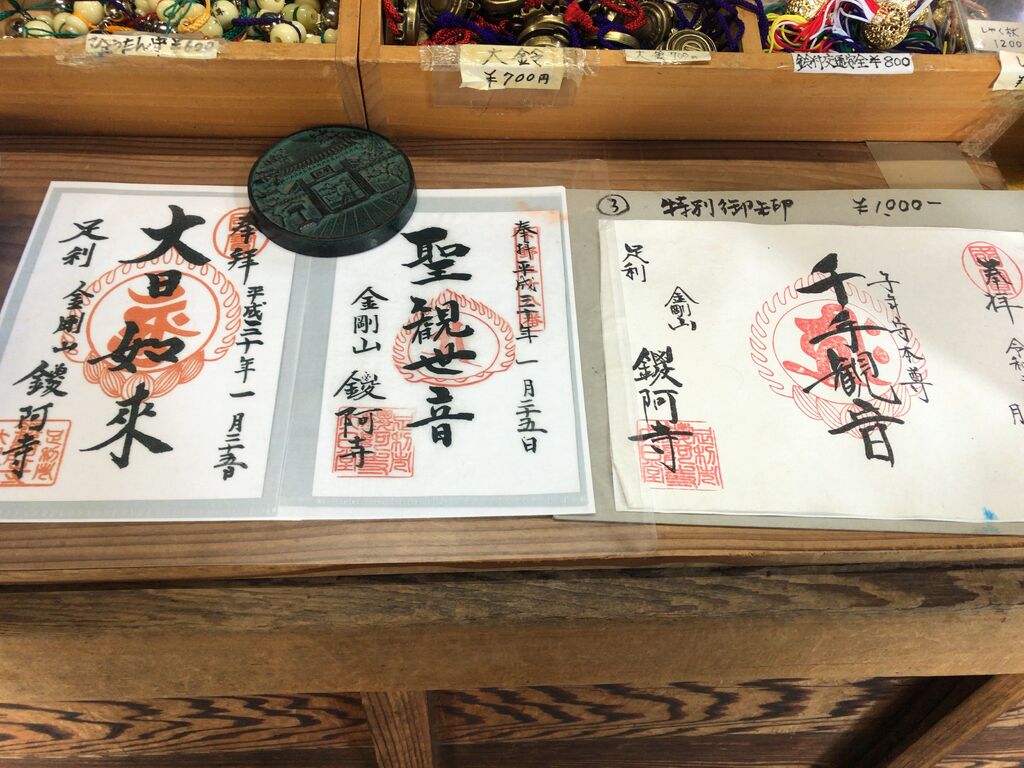 大鈴
¥700円
¥800
1200
③ 特別御朱印 ¥1,000-
奉拝
平成三十年一月二十五日
大日如来
足利
金剛山
鑁阿寺
奉拝
平成三十年一月二十五日
聖観世音
金剛山
鑁阿寺
奉拝
令和
月
子年守本尊
千手観音
足利
金剛山
鑁阿寺